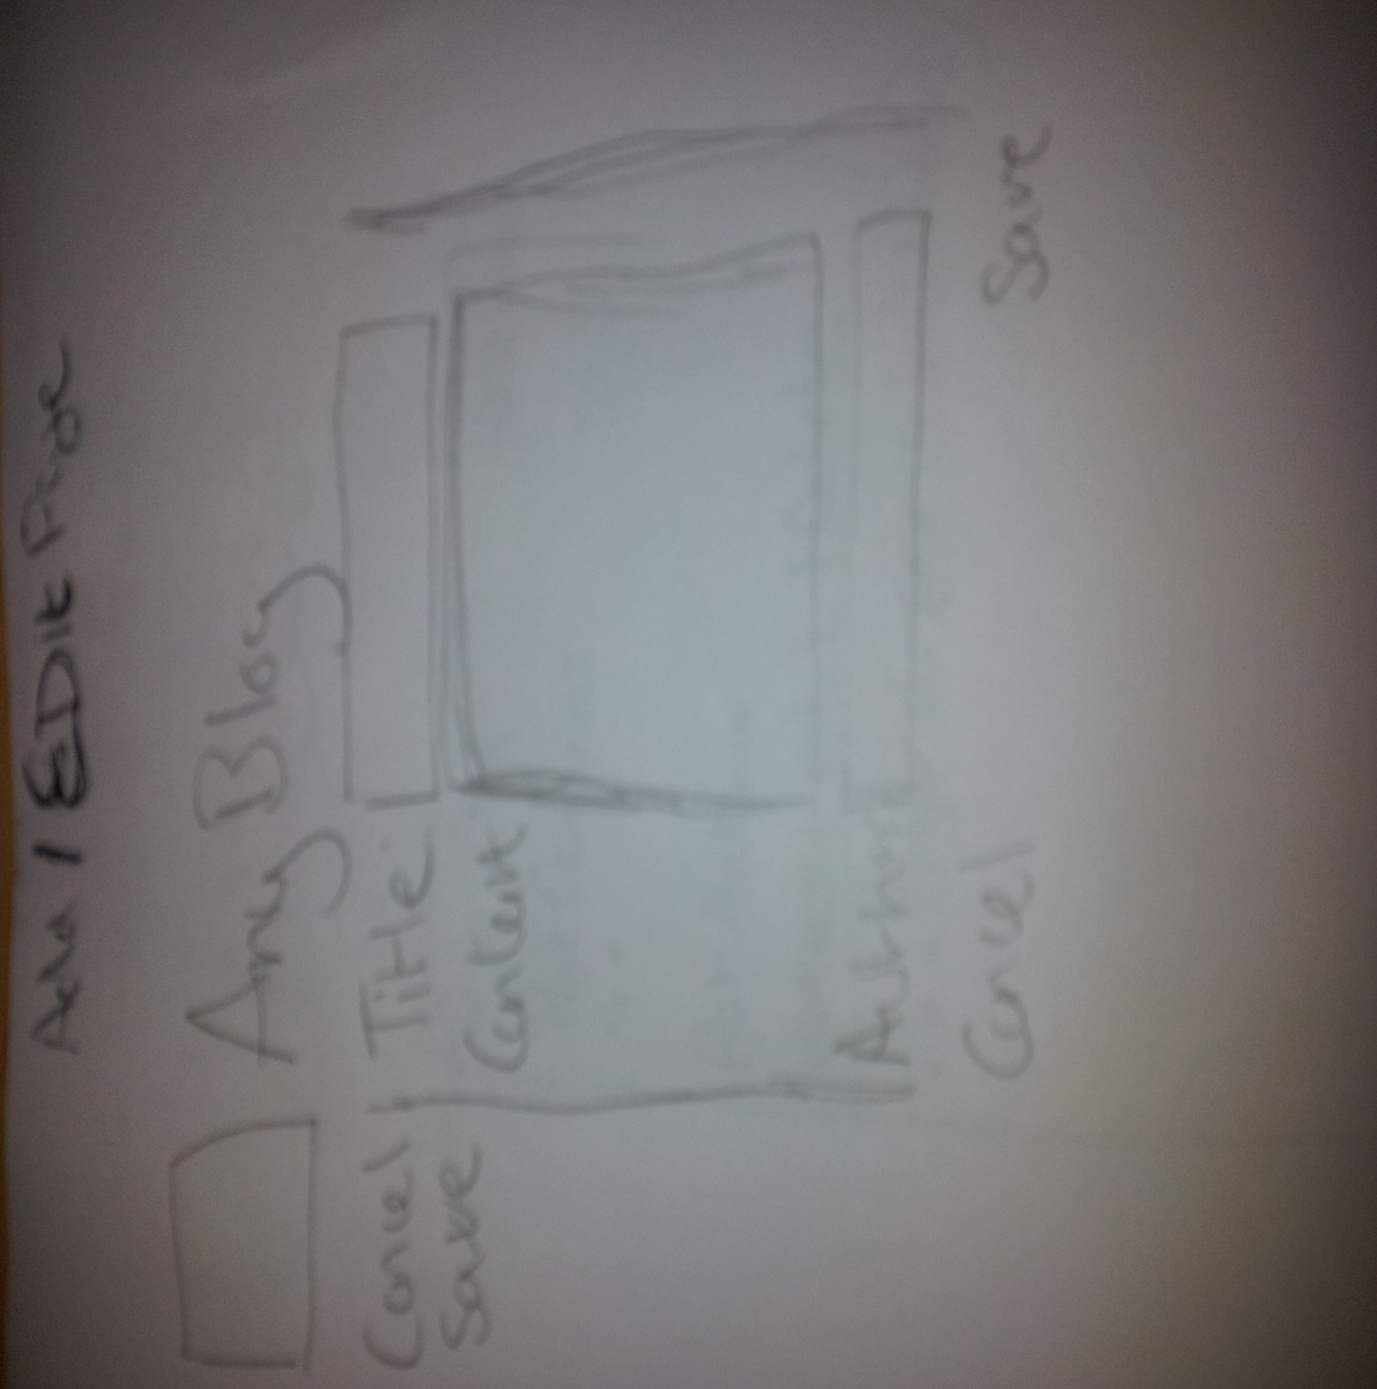 Add / EDIt Page
Any Blog
Cancel
Save
Title
Content
Author
Cancel
Save